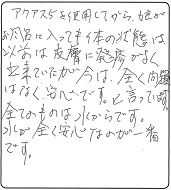 アクアス5を使用してから、娘が
お風呂に入っても体の状態は、
以前は皮膚に発疹がよく
出来ていたが今は、全く問題
はなく安心です。と言って
全てのものは水からです。
水が全く安心なのが一番
です。